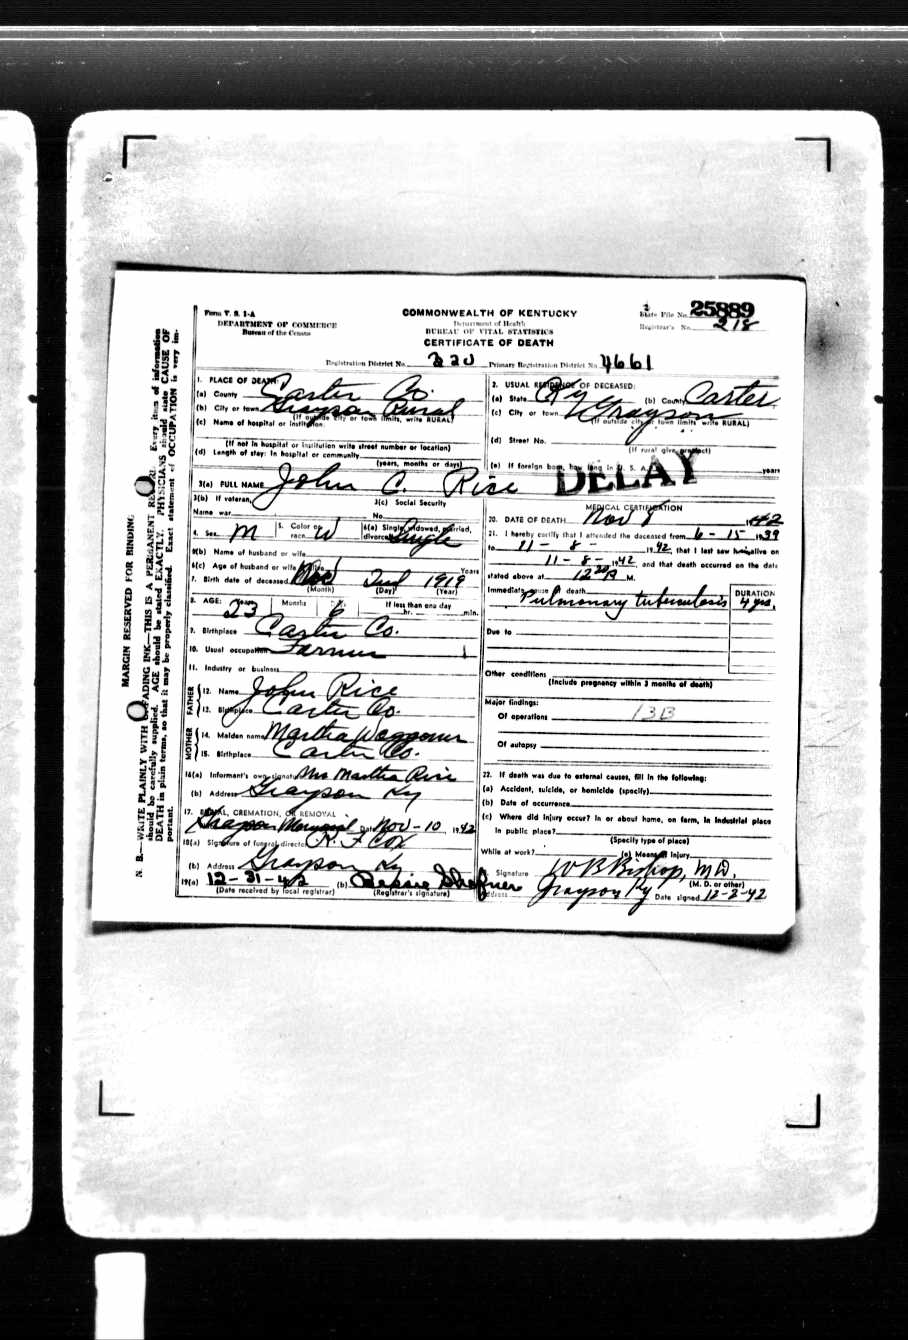 Form V. S. 1-A
DEPARTMENT OF COMMERCE
Bureau of the Census
COMMONWEALTH OF KENTUCKY
Department of Health
BUREAU OF VITAL STATISTICS
CERTIFICATE OF DEATH
State File No. 25889
Registrar's No. 218
Registration District No. 220 Primary Registration District No. 4661
MARGIN RESERVED FOR BINDING
N. B.—WRITE PLAINLY WITH UNFADING INK—THIS IS A PERMANENT RECORD. Every item of information
should be carefully supplied. AGE should be stated EXACTLY. PHYSICIANS should state CAUSE OF
DEATH in plain terms, so that it may be properly classified. Exact statement of OCCUPATION is very im-
portant.
1. PLACE OF DEATH:
(a) County Carter Co.
(b) City or town Grayson Rural
(If outside city or town limits, write RURAL)
(c) Name of hospital or institution
(If not in hospital or institution write street number or location)
(d) Length of stay: In hospital or community
(years, months or days)
2. USUAL RESIDENCE OF DECEASED:
(a) State Ky (b) County Carter
(c) City or town Grayson
(If outside city or town limits, write RURAL)
(d) Street No.
(If rural give precinct)
(e) If foreign born, how long in U. S. A. years
DELAY
3(a) FULL NAME John C. Rice
3(b) If veteran,
Name war
3(c) Social Security
No.
4. Sex M 5. Color or race W 6(a) Single, widowed, married, divorced Single
6(b) Name of husband or wife
6(c) Age of husband or wife if alive Years
7. Birth date of deceased Nov 2nd 1919
(Month) (Day) (Year)
8. AGE: Years 23 Months Days 6 If less than one day hr. min.
9. Birthplace Carter Co.
10. Usual occupation Farmer
11. Industry or business
FATHER
12. Name John Rice
13. Birthplace Carter Co.
MOTHER
14. Maiden name Martha Waggoner
15. Birthplace Carter Co.
16(a) Informant's own signature Mrs Martha Rice
(b) Address Grayson Ky
17. BURIAL, CREMATION, OR REMOVAL
Grayson Memorial Date Nov-10 1942
18(a) Signature of funeral director R. F. Cox
(b) Address Grayson Ky
19(a) 12-31-42 (b)
(Date received by local registrar) (Registrar's signature)
MEDICAL CERTIFICATION
20. DATE OF DEATH Nov 8 1942
21. I hereby certify that I attended the deceased from 6-15-1939
to 11-8- 1942, that I last saw him alive on
11-8- 1942, and that death occurred on the date
stated above at 12 30 P M.
Immediate cause of death Pulmonary tuberculosis
DURATION
4 yrs.
Due to
Other conditions
(Include pregnancy within 3 months of death)
Major findings:
Of operations 13B
Of autopsy
22. If death was due to external causes, fill in the following:
(a) Accident, suicide, or homicide (specify)
(b) Date of occurrence
(c) Where did injury occur? In or about home, on farm, in industrial place
in public place?
(Specify type of place)
While at work? (e) Means of Injury
Signature W B Bishop, M D.
(M. D. or other)
Address Grayson Ky Date signed 12-2-42